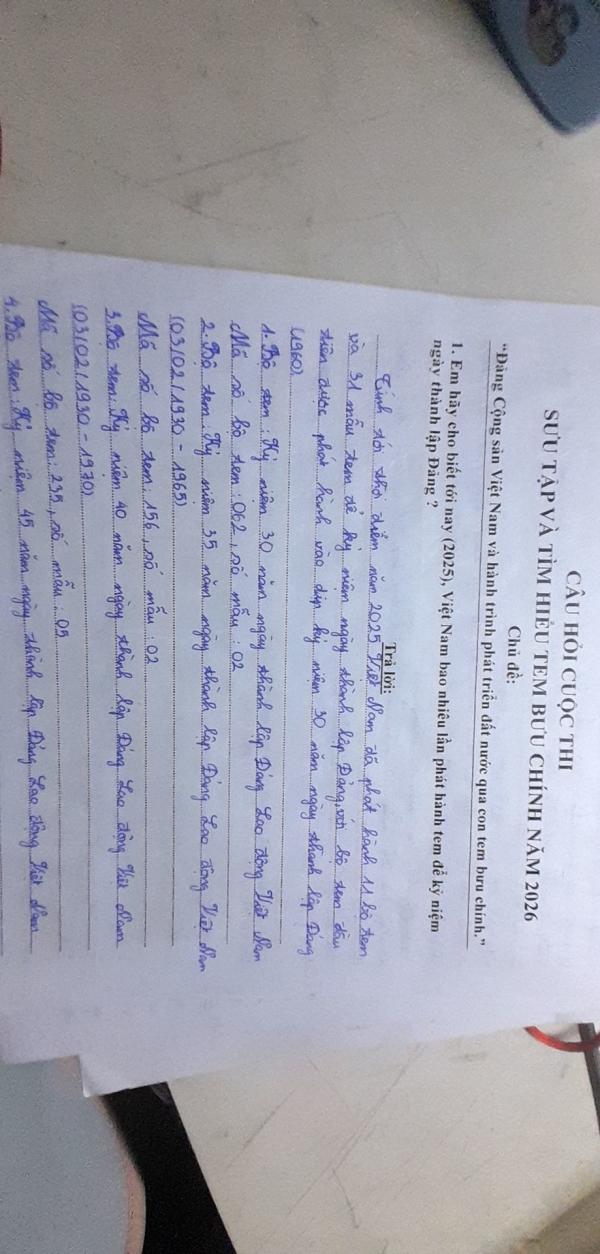 CÂU HỎI CUỘC THI
SƯU TẬP VÀ TÌM HIỂU TEM BƯU CHÍNH NĂM 2026
Chủ đề:
“Đảng Cộng sản Việt Nam và hành trình phát triển đất nước qua con tem bưu chính.”
1. Em hãy cho biết tới nay (2025), Việt Nam bao nhiêu lần phát hành tem để kỷ niệm
ngày thành lập Đảng ?
Trả lời:
Tính tới thời điểm năm 2025 Việt Nam đã phát hành 11 bộ tem
và 31 mẫu tem để kỷ niệm ngày thành lập Đảng, với bộ tem đầu
tiên được phát hành vào dịp kỷ niệm 30 năm ngày thành lập Đảng
(1960)
1. Bộ tem: Kỷ niệm 30 năm ngày thành lập Đảng Lao động Việt Nam
Mã số bộ tem: 062, số mẫu: 02
2. Bộ tem: Kỷ niệm 35 năm ngày thành lập Đảng Lao động Việt Nam
(03/02/1930 - 1965)
Mã số bộ tem: 156, số mẫu: 02
3. Bộ tem: Kỷ niệm 40 năm ngày thành lập Đảng Lao động Việt Nam
(03/02/1930 - 1970)
Mã số bộ tem: 235, số mẫu: 05
4. Bộ tem: Kỷ niệm 45 năm ngày thành lập Đảng Lao động Việt Nam